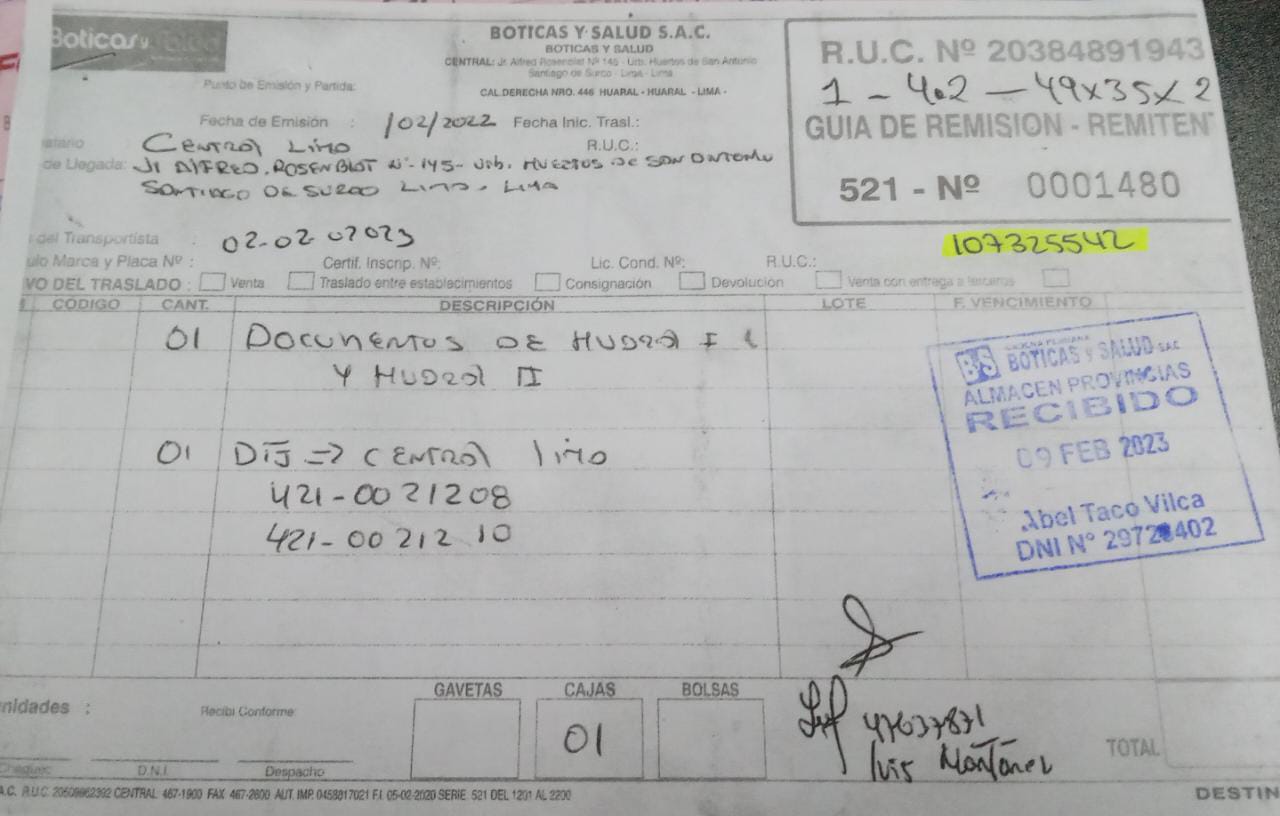 Boticas y Salud
BOTICAS Y SALUD S.A.C.
BOTICAS Y SALUD
CENTRAL: Jr. Alfred Rosenblat Nº 145 - Urb. Huertos de San Antonio
Santiago de Surco - Lima - Lima
CAL.DERECHA NRO. 446 HUARAL - HUARAL - LIMA -
R.U.C. Nº 20384891943
1 - 4.2 - 49x35x2
GUIA DE REMISION - REMITEN
521 - Nº 0001480
Punto de Emisión y Partida:
Fecha de Emisión : 1/02/2022 Fecha Inic. Trasl.:
atario CENTRAL LIMA R.U.C.:
de Llegada: Jr ALFRED. ROSENBLOT Nº-145- Urb. HUERTOS DE SAN ANTONIO
SANTIAGO DE SURCO LIMA. LIMA
del Transportista : 02-02-02023
107325542
ulo Marca y Placa Nº : Certif. Inscrip. Nº: Lic. Cond. Nº: R.U.C.:
VO DEL TRASLADO : Venta Traslado entre establecimientos Consignación Devolución Venta con entrega a terceros
CÓDIGO CANT. DESCRIPCIÓN LOTE F. VENCIMIENTO
01 DOCUMENTOS DE HUARAL I
Y HUARAL II
01 DIJ => CENTRAL lima
421-0021208
421-0021210
BS BOTICAS Y SALUD SAC
ALMACEN PROVINCIAS
RECIBIDO
09 FEB 2023
Abel Taco Vilca
DNI Nº 29728402
GAVETAS CAJAS BOLSAS
nidades : Recibi Conforme:
01
47637871
luis Montañez
TOTAL
Chequeo D.N.I. Despacho
A.C. R.U.C. 20509862392 CENTRAL 467-1900 FAX 467-2600 AUT. IMP. 0458817021 F.I. 05-02-2020 SERIE 521 DEL 1201 AL 2200
DESTIN